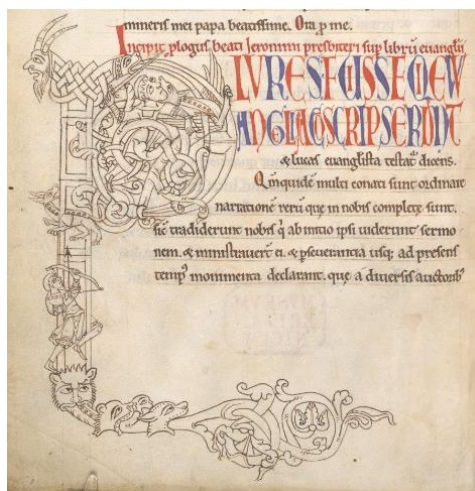 mineris mei papa beatissime. Ora p̄ me.
Incipit p̄logus beati Ieronimi presbiteri sup̄ librū euangliı̄
PLURES FUISSE QI EU
ANGELIA CŌSCRIPSERUNT
& lucas euanglista testat̄ dicens.
Qm̄ quidē multi conati sunt ordinare
narrationē rerū que in nobis complete sunt.
sic̄ tradiderunt nobis q̄ ab initio ipsi uiderunt sermo
nem. & ministrauer̄t ei. & p̄seuerantia usq; ad presens
tempꝰ monimenta declarant. que a diuersis auctorib;